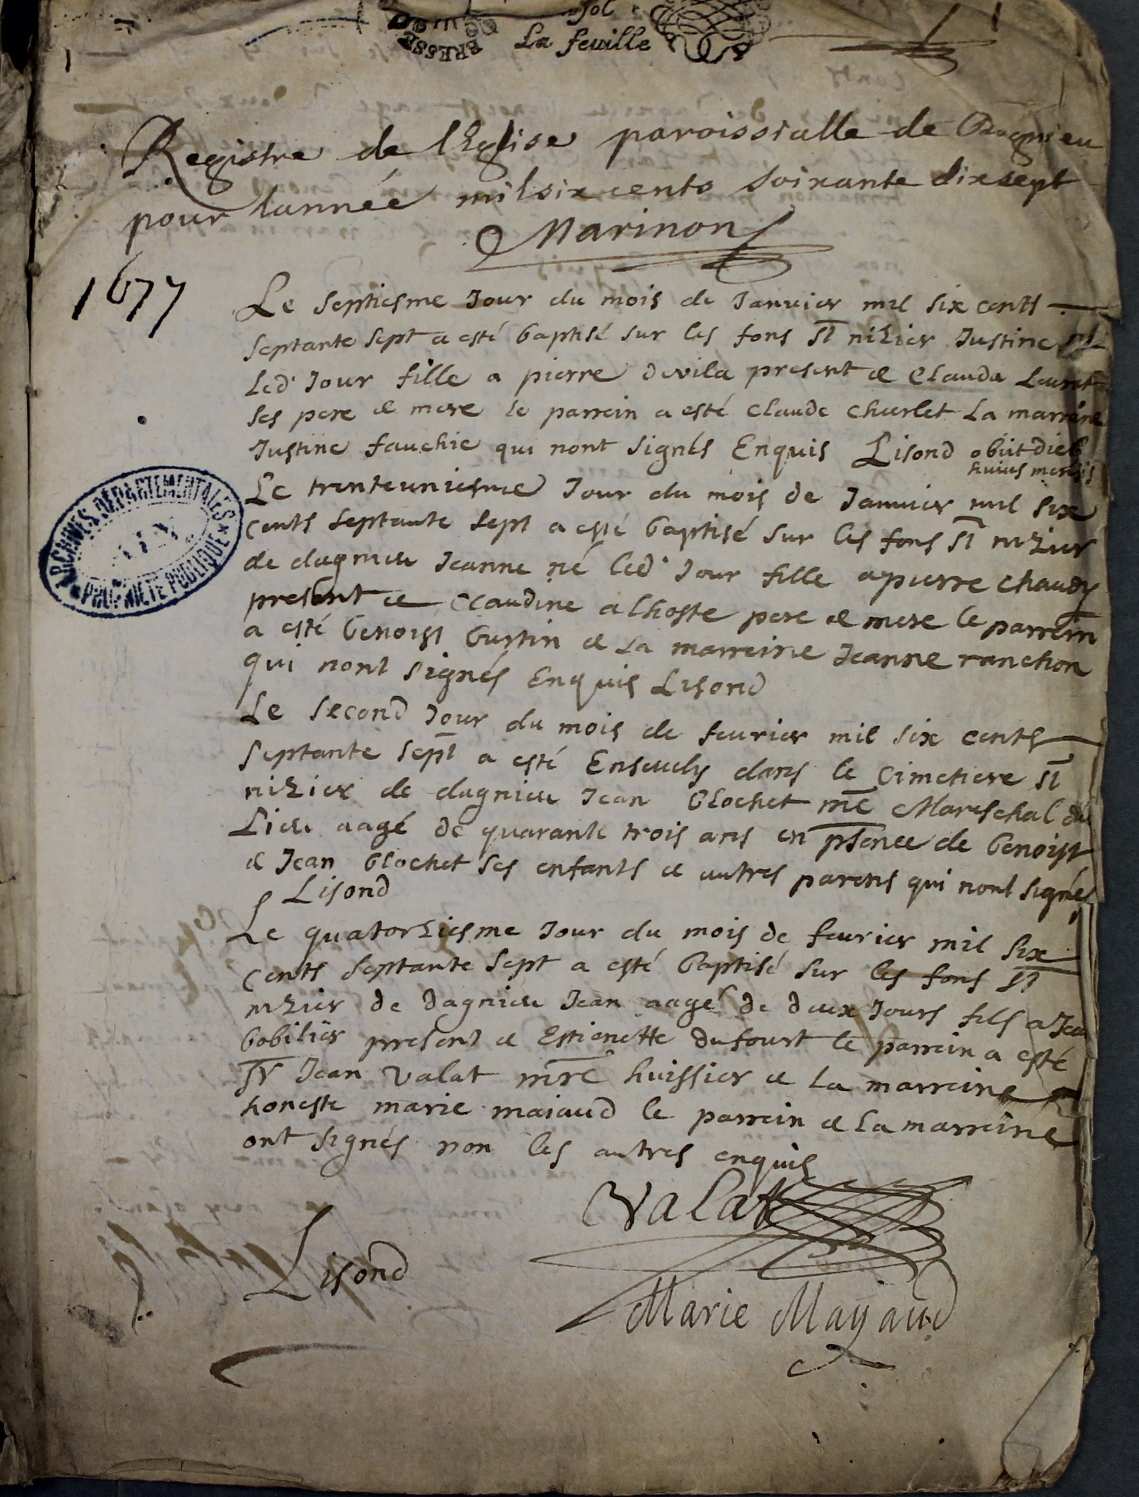 sol
La feuille
BRESSE
Registre de lEglise paroissialle de Dagnieu
pour lannéé mil six cents soixante dixsept
Marinon
1677
Le septiesme Jour du mois de Januier mil six cents
septante sept a esté baptisé sur les fons st nizier Justine né
led' Jour fille a pierre devila present & Clauda
ses pere & mere le parrein a esté Claude Charlet La marreine
Justine fauchie qui nont signés Enquis Lisond obiit die
huius mensis
Le trenteuniesme Jour du mois de Januier mil six
cents septante sept a esté baptisé sur les fons st nizier
de dagnieu Jeanne né led' Jour fille a pierre Chaudy
present & Claudine alhoste pere & mere le parrein
a esté benoist bustin & La marreine Jeanne ranchon
qui nont signés Enquis Lisond
Le second Jour du mois de feurier mil six cents
septante sept a esté Enseuely dans le Cimetiere st
nizier de dagnieu Jean blochet me Mareschal du
Lieu aagé de quarante trois ans en psence de benoist
& Jean blochet ses enfants & autres parens qui nont signés
Lisond
Le quatorziesme Jour du mois de feurier mil six
cents septante sept a esté baptisé sur les fons st
nizier de dagnieu Jean aagé de deux Jours fils a Jean
bobilier present & Estienette dufourt le parrein a esté
sr Jean Valat mre huissier & la marreine
honeste marie maiaud le parrein & La marreine
ont signés non les autres enquis
Valat
Lisond
Marie Mayaud
ARCHIVES DÉPARTEMENTALES
AIN
PROPRIÉTÉ PUBLIQUE